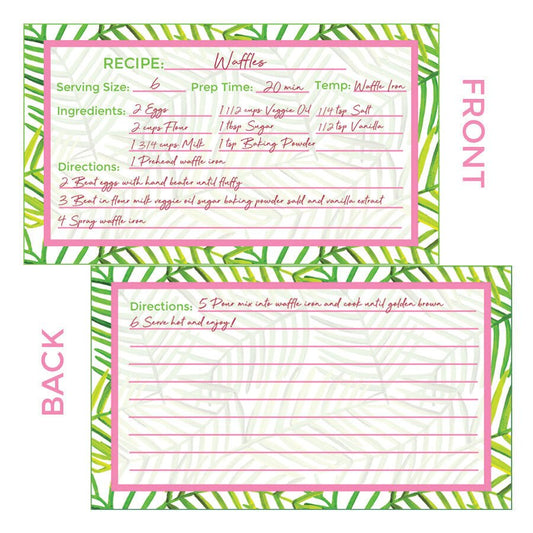 RECIPE: Waffles
Serving Size: 6 Prep Time: 20 min Temp: Waffle Iron
Ingredients: 2 Eggs 1 1/2 cups Veggie Oil 1/4 tsp Salt
2 cups Flour 1 tbsp Sugar 1/2 tsp Vanilla
1 3/4 cups Milk 1 tsp Baking Powder
Directions: 1 Prehead waffle iron
2 Beat eggs with hand beater until fluffy
3 Beat in flour milk veggie oil sugar baking powder sald and vanilla extract
4 Spray waffle iron
FRONT
BACK
Directions: 5 Pour mix into waffle iron and cook until golden brown
6 Serve hot and enjoy!